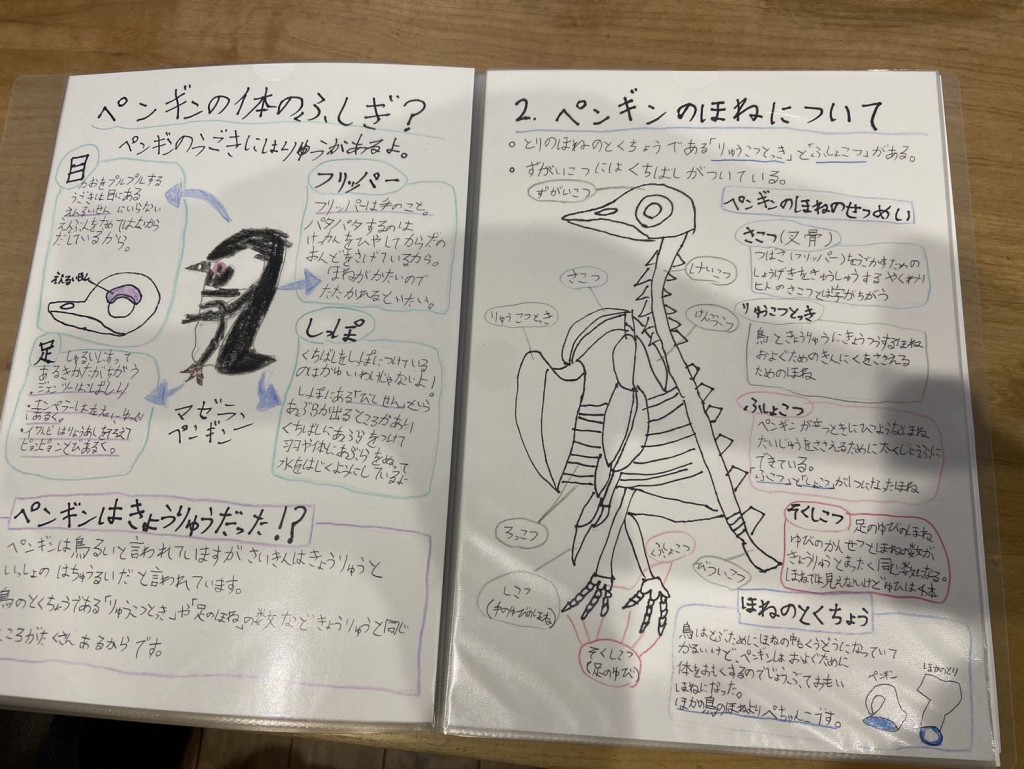 ペンギンの体のふしぎ?
ペンギンのうごきにはりゆうがあるよ。
目
かおをプルプルする
うごきは目にある
えんるいせんにいらない
えんぶんをためてはなから
だしているから。
えんるいせん
フリッパー
フリッパーは手のこと。
パタパタするのは
けっかんをひやしてからだの
おんどをさげているから。
ほねがかたいので
たたかれるといたい。
足
しゅるいによって
あるきかたがちがう
・ジェンツーはこばしり
・エンペラーは
あるく。
・イワトビはりょうあしをそろえて
ピョンピョンとびあるく。
マゼラン
ペンギン
しっぽ
くちばしをしっぽにつけている
のはかゆいわけじゃないよ!
しっぽにある「びしせん」という
あぶらが出るところがあり
くちばしにあぶらをつけて
羽や体にあぶらをぬって
水をはじくようにしているよ
ペンギンはきょうりゅうだった!?
ペンギンは鳥るいと言われていますがさいきんはきょうりゅうと
いっしょの はちゅうるいだと言われています。
鳥のとくちょうである「りゅうこつとっき」や「足のほね」の数などきょうりゅうと同じ
ところがたくさんあるからです。
2. ペンギンのほねについて
○ とりのほねのとくちょうである「りゅうこつとっき」と「ふしょこつ」がある。
○ ずがいこつにはくちばしがついている。
ずがいこつ
けいこつ
さこつ
りゅうこつとっき
けんこうこつ
ろっこつ
しこつ
(手のゆびのほね)
ふしょこつ
びついこつ
そくしこつ
(足のゆび)
ペンギンのほねのせつめい
さこつ(叉骨)
つばさ(フリッパー)をうごかすための
しょうげきをきゅうしゅうするやくわり
ヒトのさこつとは字がちがう
りゅうこつとっき
鳥ときょうりゅうにきょうつうするほね
およぐためのきんにくをささえる
ためのほね
ふしょこつ
ペンギンが立つときにひつようなほね
たいじゅうをささえるために太くじょうぶに
できている。
「ふこつ」と「しょこつ」が1つになったほね
そくしこつ
足のゆびのほね
ゆびのかんせつとほねの数が
きょうりゅうとまったく同じ数になる。
ほねでは見えないけどゆびは4本
ほねのとくちょう
鳥はとぶためにほねの中もくうどうになっていて
かるいけど、ペンギンはおよぐために
体をおもくするのでじょうぶでおもい
ほねになった。
ほかの鳥のほねよりぺちゃんこです。
ペンギン
ほかのとり